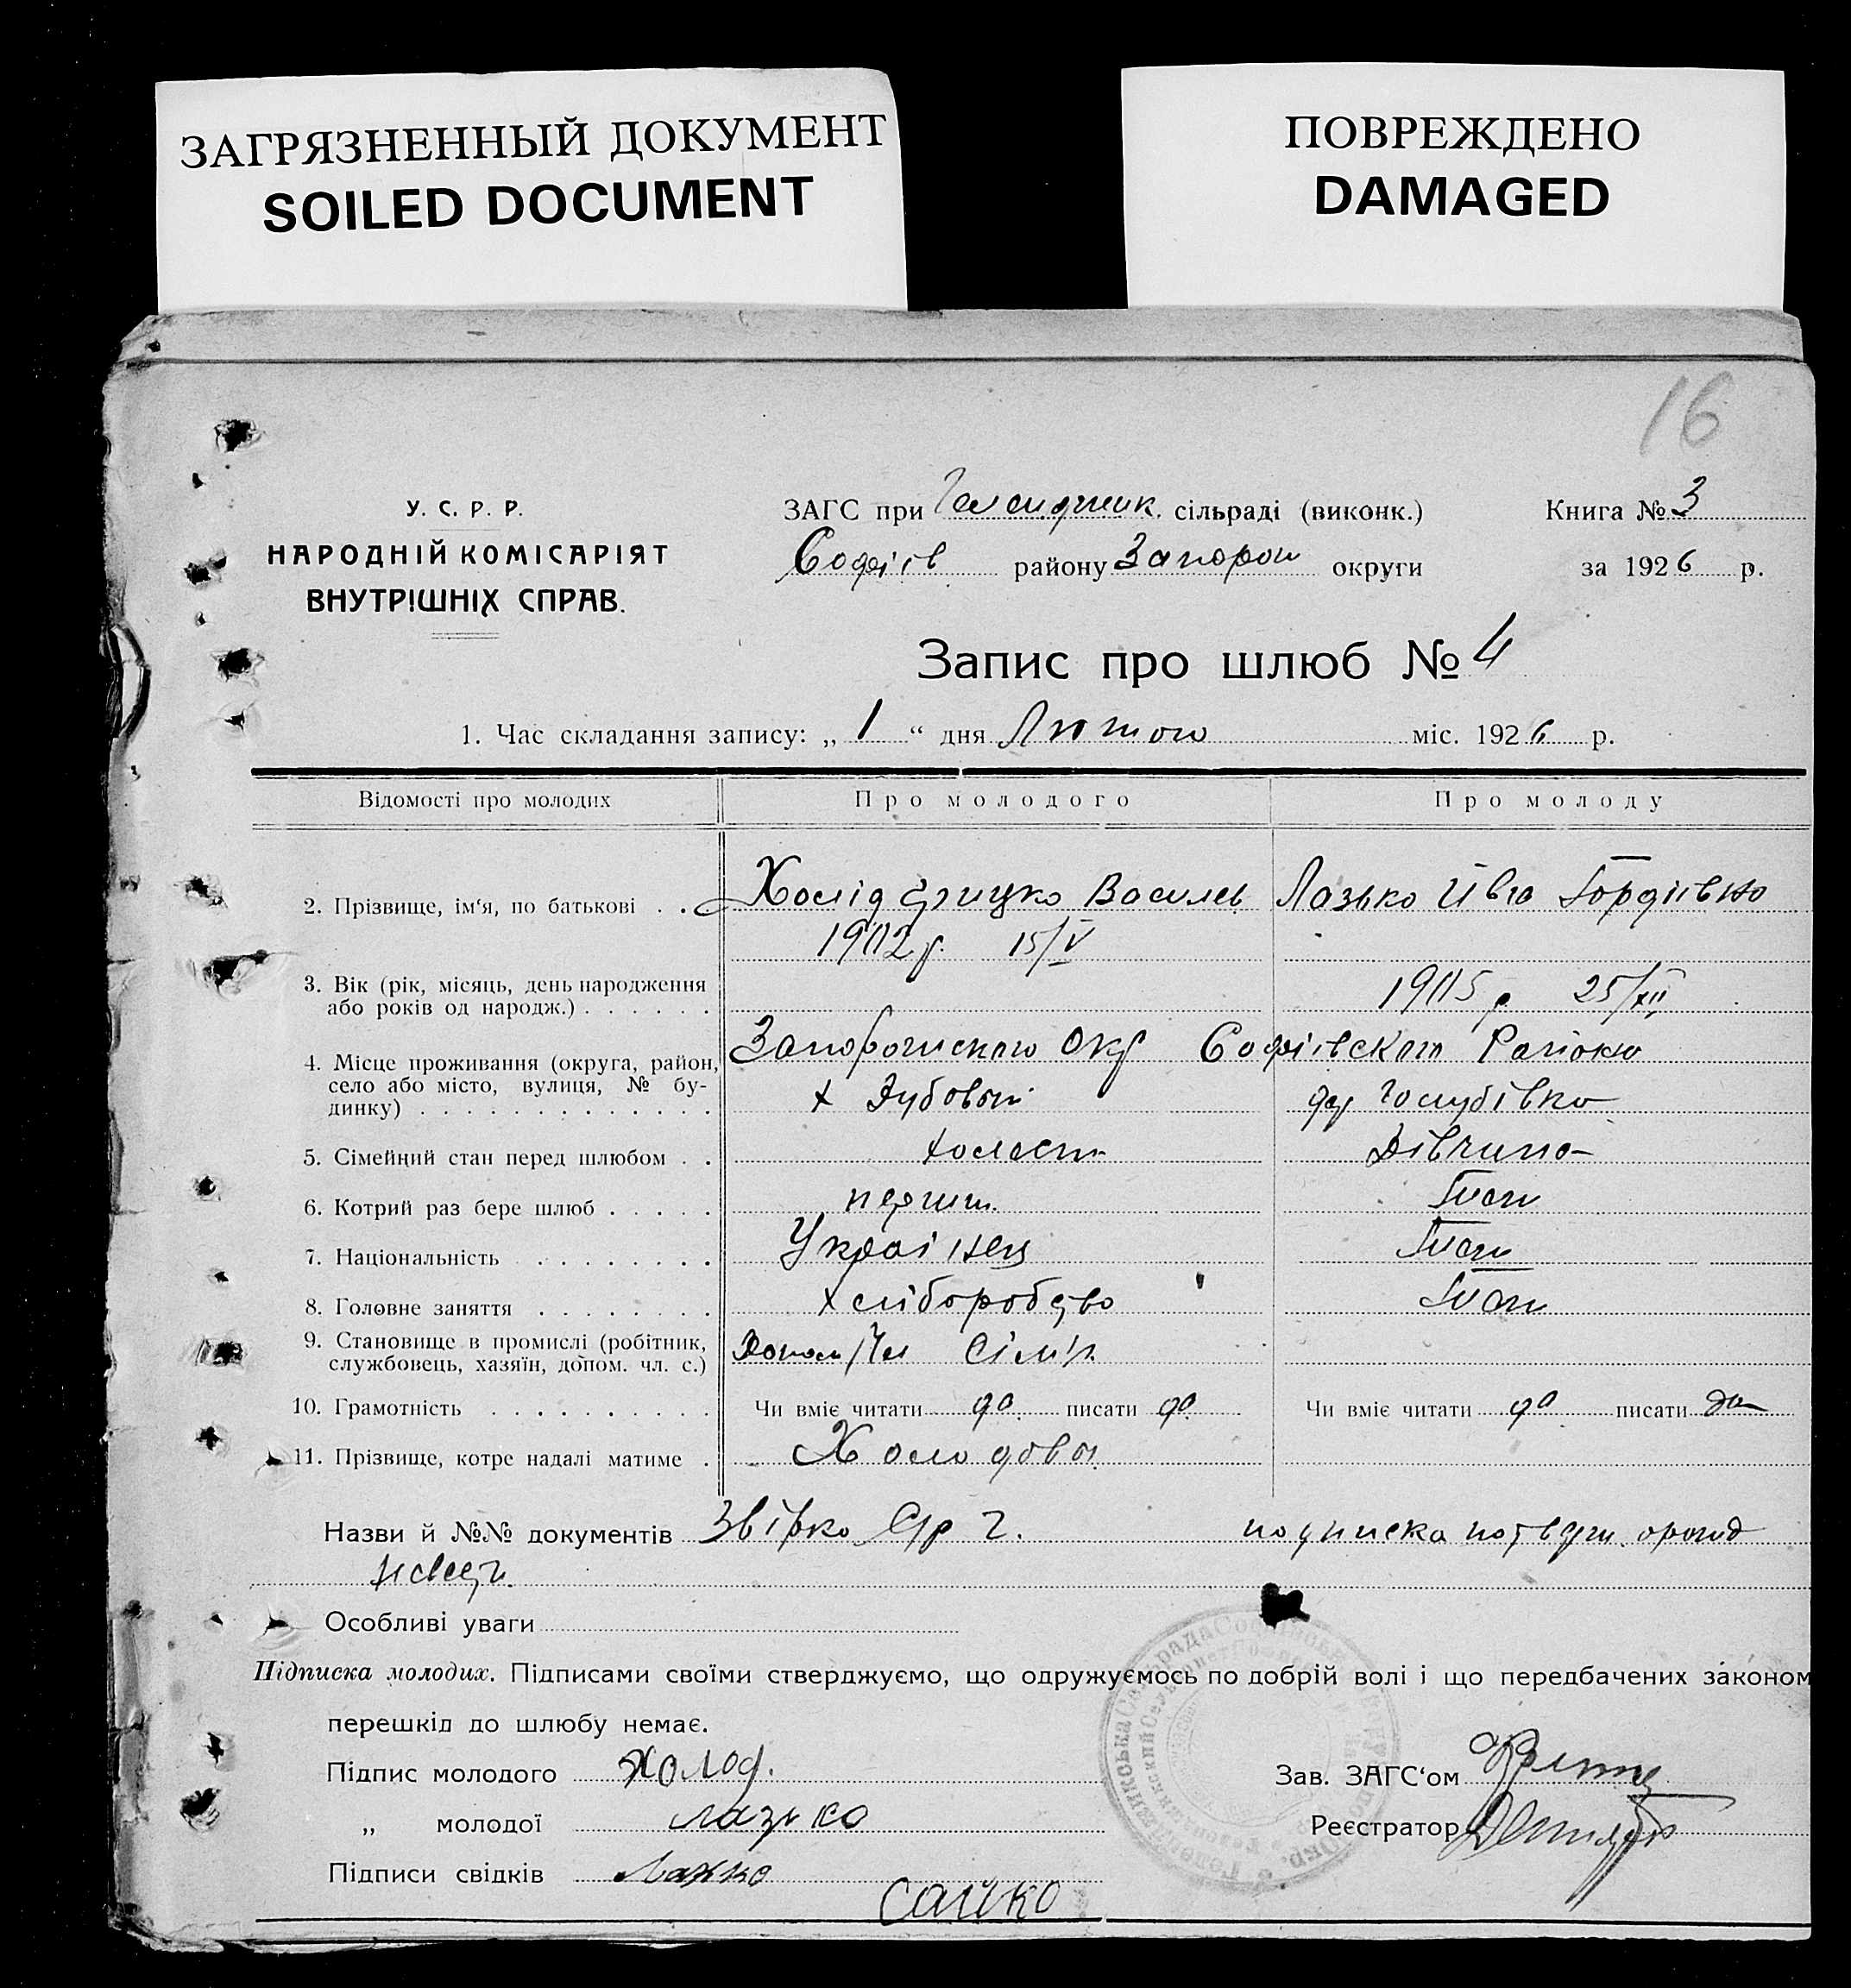 ЗАГРЯЗНЕННЫЙ ДОКУМЕНТ
SOILED DOCUMENT
ПОВРЕЖДЕНО
DAMAGED
16
У. С. Р. Р.
НАРОДНІЙ КОМІСАРІЯТ
ВНУТРІШНІХ СПРАВ.
ЗАГС при сільраді (виконк.)
Софіїв району Запорож округи
Книга № 3
за 1926 р.
Запис про шлюб № 4
1. Час складання запису: „ 1 “ дня Лютого міс. 1926 р.
Відомості про молодих Про молодого Про молоду
2. Прізвище, ім‘я, по батькові . . Холід Грицко Василев Лазько Ивга Гордіївна
1902 р. 15/V
3. Вік (рік, місяць, день народження
або років од народж.) . . . . . . 1905 р 25/XII
4. Місце проживання (округа, район, Запорожского Окр Софіївского Району
село або місто, вулиця, № бу-
динку) . . . . . . . . . . . . . х Дубовый дер Голубівка
5. Сімейний стан перед шлюбом . . холост Дівчина
6. Котрий раз бере шлюб . . . . . перший
7. Національність . . . . . . . . Українец
8. Головне заняття . . . . . . . . хліборобство
9. Становище в промислі (робітник,
службовець, хазяїн, допом. чл. с.) Допом/Чл Сім'ї
10. Грамотність . . . . . . . . . . Чи вміє читати да писати да Чи вміє читати да писати да
11. Прізвище, котре надалі матиме . Холодовы
Назви й №№ документів подписка
Особливі уваги
Підписка молодих. Підписами своїми стверджуємо, що одружуємось по добрій волі і що передбачених законом
перешкід до шлюбу немає.
Підпис молодого Холод.
„ молодої лазько
Підписи свідків
Сайко
Зав. ЗАГС‘ом
Реєстратор